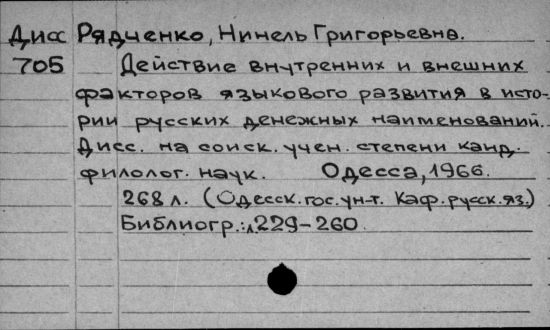 Дисс Рядченко, Нинель Григорьевна.
705 Действие внутренних и внешних
факторов языкового развития в исто-
рии русских денежных наименований.
Дисс. на соиск. учен. степени канд.
филолог. наук. Одесса, 1966.
268 л. (Одесск. гос. ун-т. Каф. русск. яз.)
Библиогр.: л 229-260.